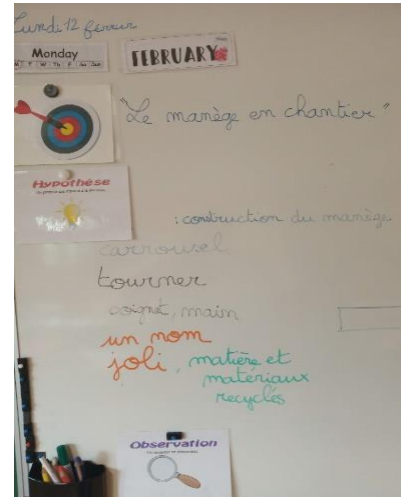 Lundi 12 février
Monday
M T W Th F Sa Sun
FEBRUARY
"Le manège en chantier"
Hypothèse
: construction du manège
carrousel
tourner
poignet, main
un nom
joli, matière et
matériaux
recyclés
Observation